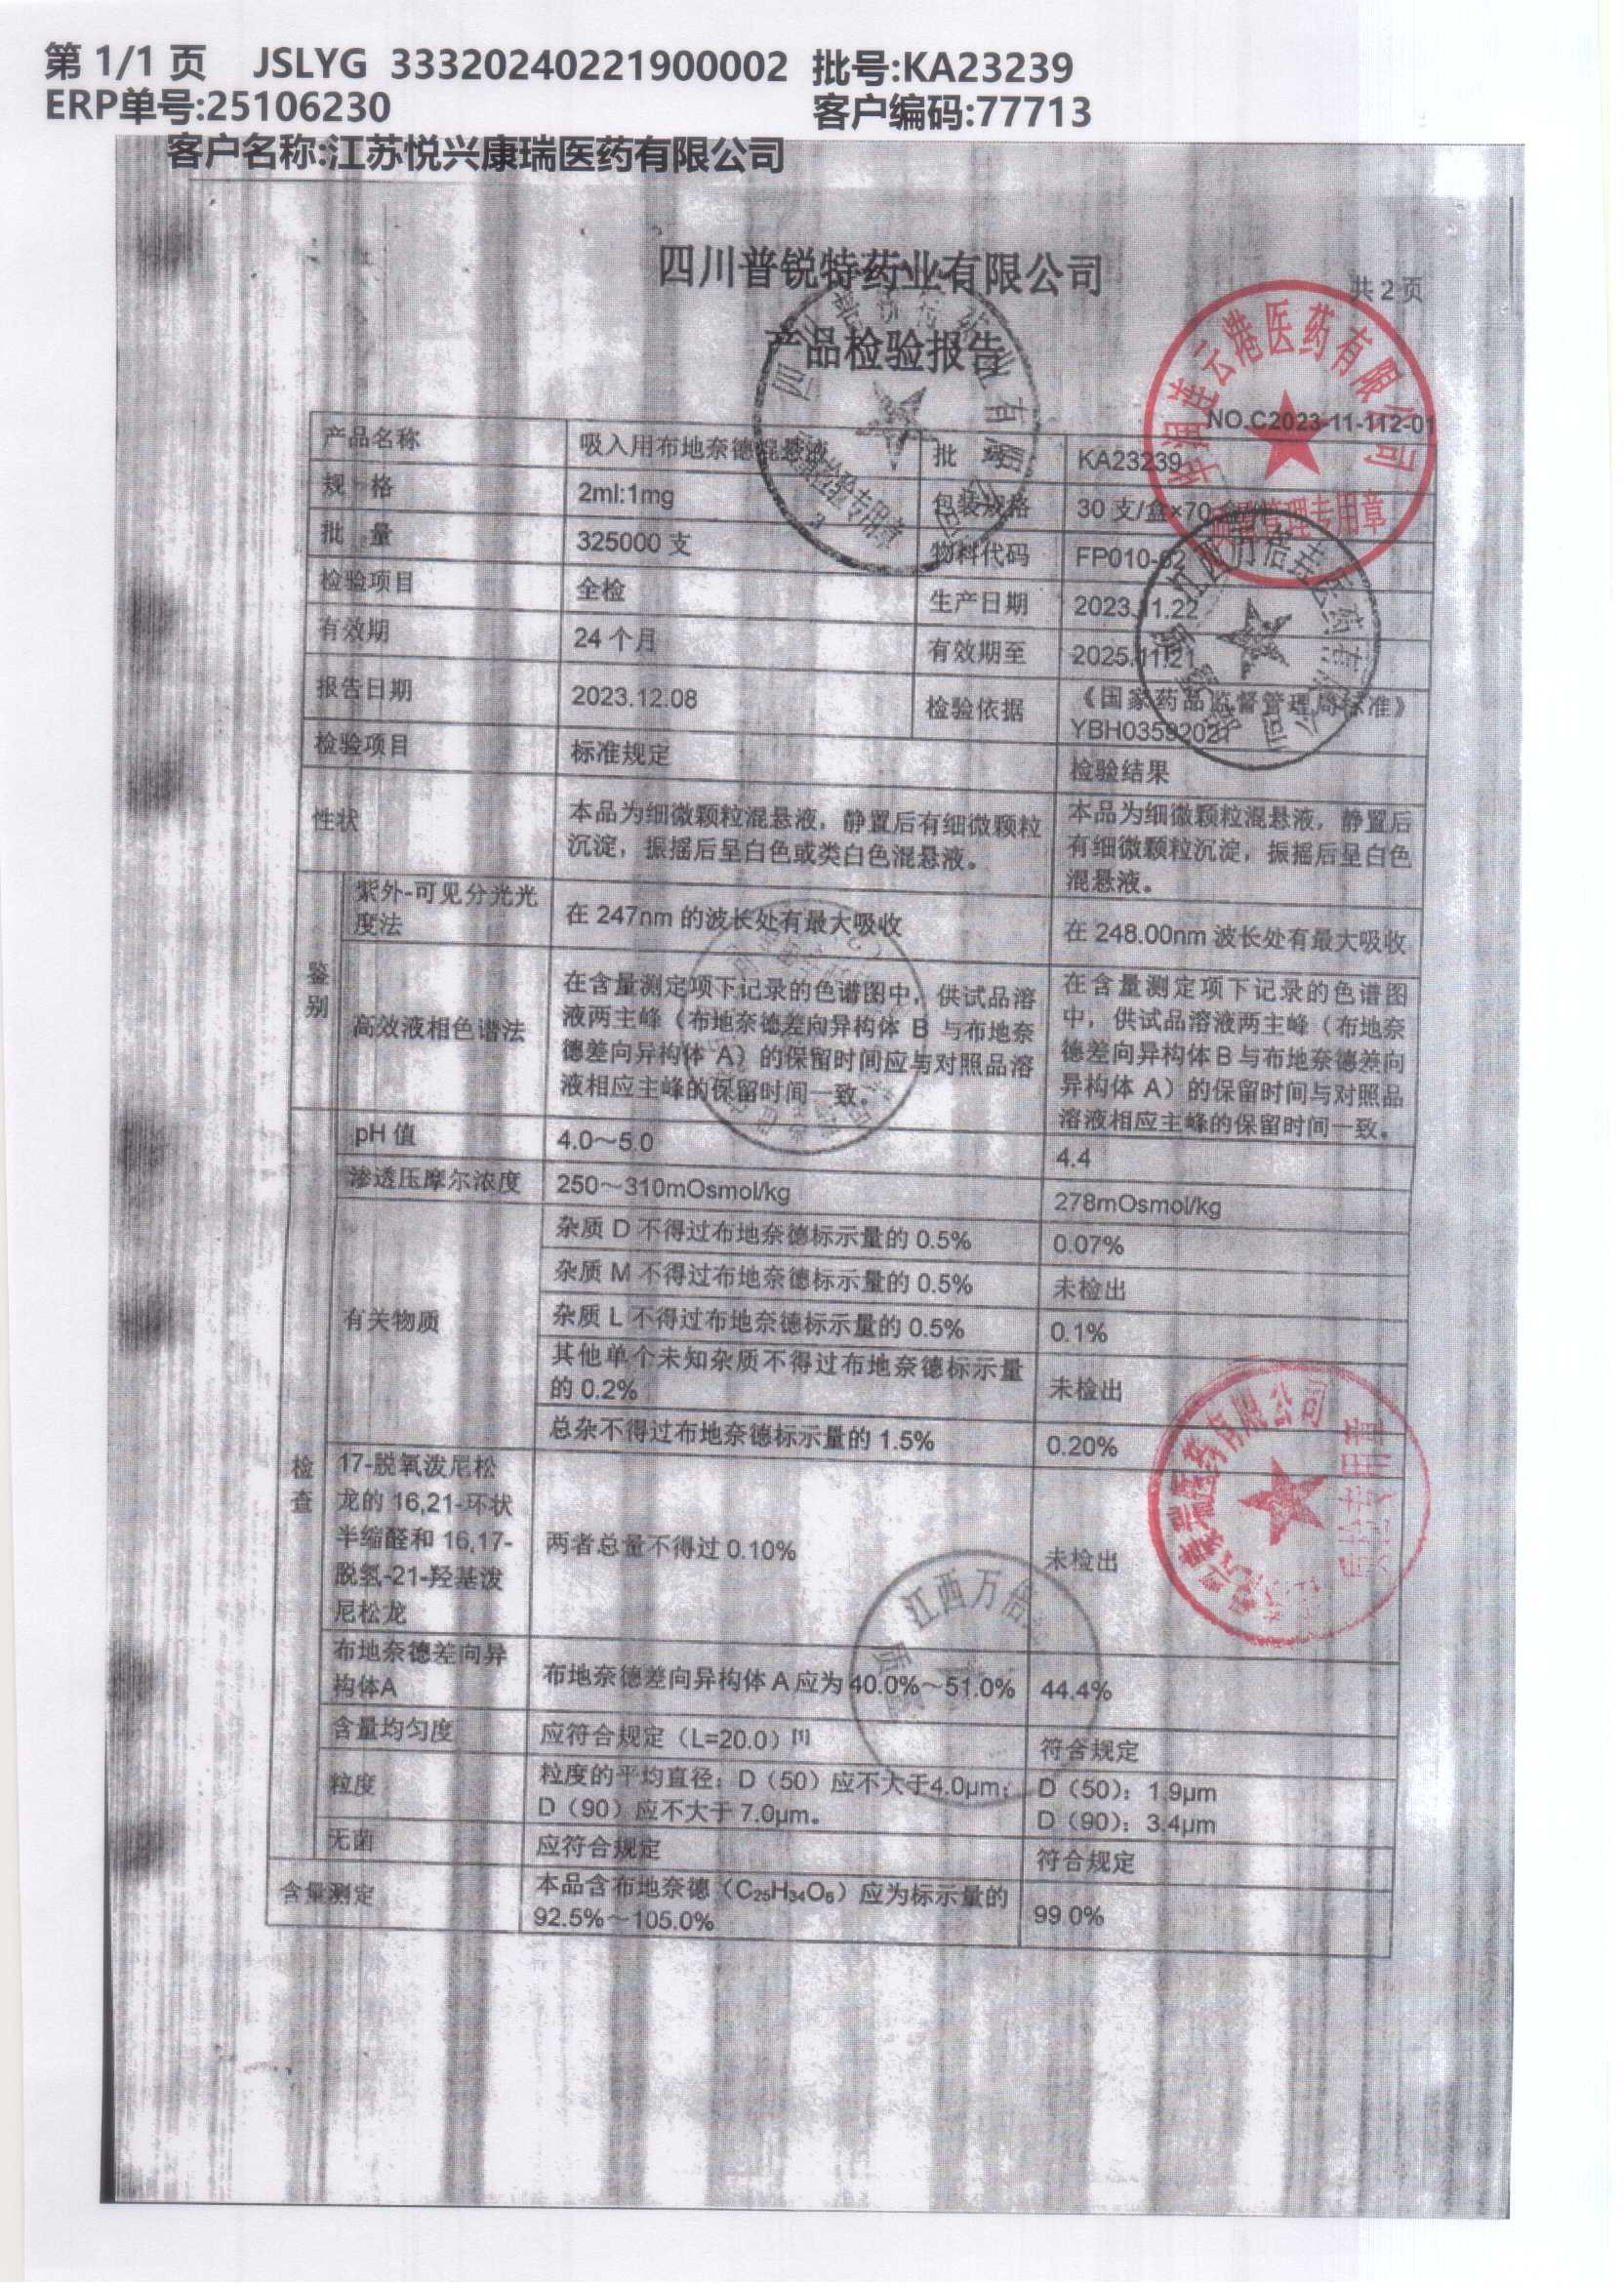 第 1/1 页 JSLYG 33320240221900002 批号:KA23239
ERP单号:25106230 客户编码:77713
客户名称:江苏悦兴康瑞医药有限公司
四川普锐特药业有限公司
共 2 页
产品检验报告
NO.C2023-11-112-01
产品名称 吸入用布地奈德混悬液 批 KA23239
规 格 2ml:1mg 包装规格 30 支/盒×70
批 量 325000 支 物料代码 FP010-02
检验项目 全检 生产日期 2023.11.22
有效期 24 个月 有效期至 2025.11.21
报告日期 2023.12.08 检验依据 《国家药品监督管理局标准》
YBH03592021
检验项目 标准规定 检验结果
性状 本品为细微颗粒混悬液，静置后有细微颗粒 本品为细微颗粒混悬液，静置后
沉淀，振摇后呈白色或类白色混悬液。 有细微颗粒沉淀，振摇后呈白色
混悬液。
鉴别
紫外-可见分光光 在 247nm 的波长处有最大吸收 在 248.00nm 波长处有最大吸收
度法
高效液相色谱法 在含量测定项下记录的色谱图中，供试品溶 在含量测定项下记录的色谱图
液两主峰（布地奈德差向异构体 B 与布地奈 中，供试品溶液两主峰（布地奈
德差向异构体 A）的保留时间应与对照品溶 德差向异构体 B 与布地奈德差向
液相应主峰的保留时间一致。 异构体 A）的保留时间与对照品
溶液相应主峰的保留时间一致。
检查
pH 值 4.0～5.0 4.4
渗透压摩尔浓度 250～310mOsmol/kg 278mOsmol/kg
有关物质 杂质 D 不得过布地奈德标示量的 0.5% 0.07%
杂质 M 不得过布地奈德标示量的 0.5% 未检出
杂质 L 不得过布地奈德标示量的 0.5% 0.1%
其他单个未知杂质不得过布地奈德标示量 未检出
的 0.2%
总杂不得过布地奈德标示量的 1.5% 0.20%
17-脱氧泼尼松
龙的 16,21-环状
半缩醛和 16,17- 两者总量不得过 0.10% 未检出
脱氢-21-羟基泼
尼松龙
布地奈德差向异 布地奈德差向异构体 A 应为 40.0%～51.0% 44.4%
构体A
含量均匀度 应符合规定（L=20.0）[1] 符合规定
粒度 粒度的平均直径：D（50）应不大于4.0μm； D（50）：1.9μm
D（90）应不大于 7.0μm。 D（90）：3.4μm
无菌 应符合规定 符合规定
含量测定 本品含布地奈德（C25H34O6）应为标示量的 99.0%
92.5%～105.0%
华润连云港医药有限公司
质量管理专用章
检验专用章
江西万倍
质
医药有限公司